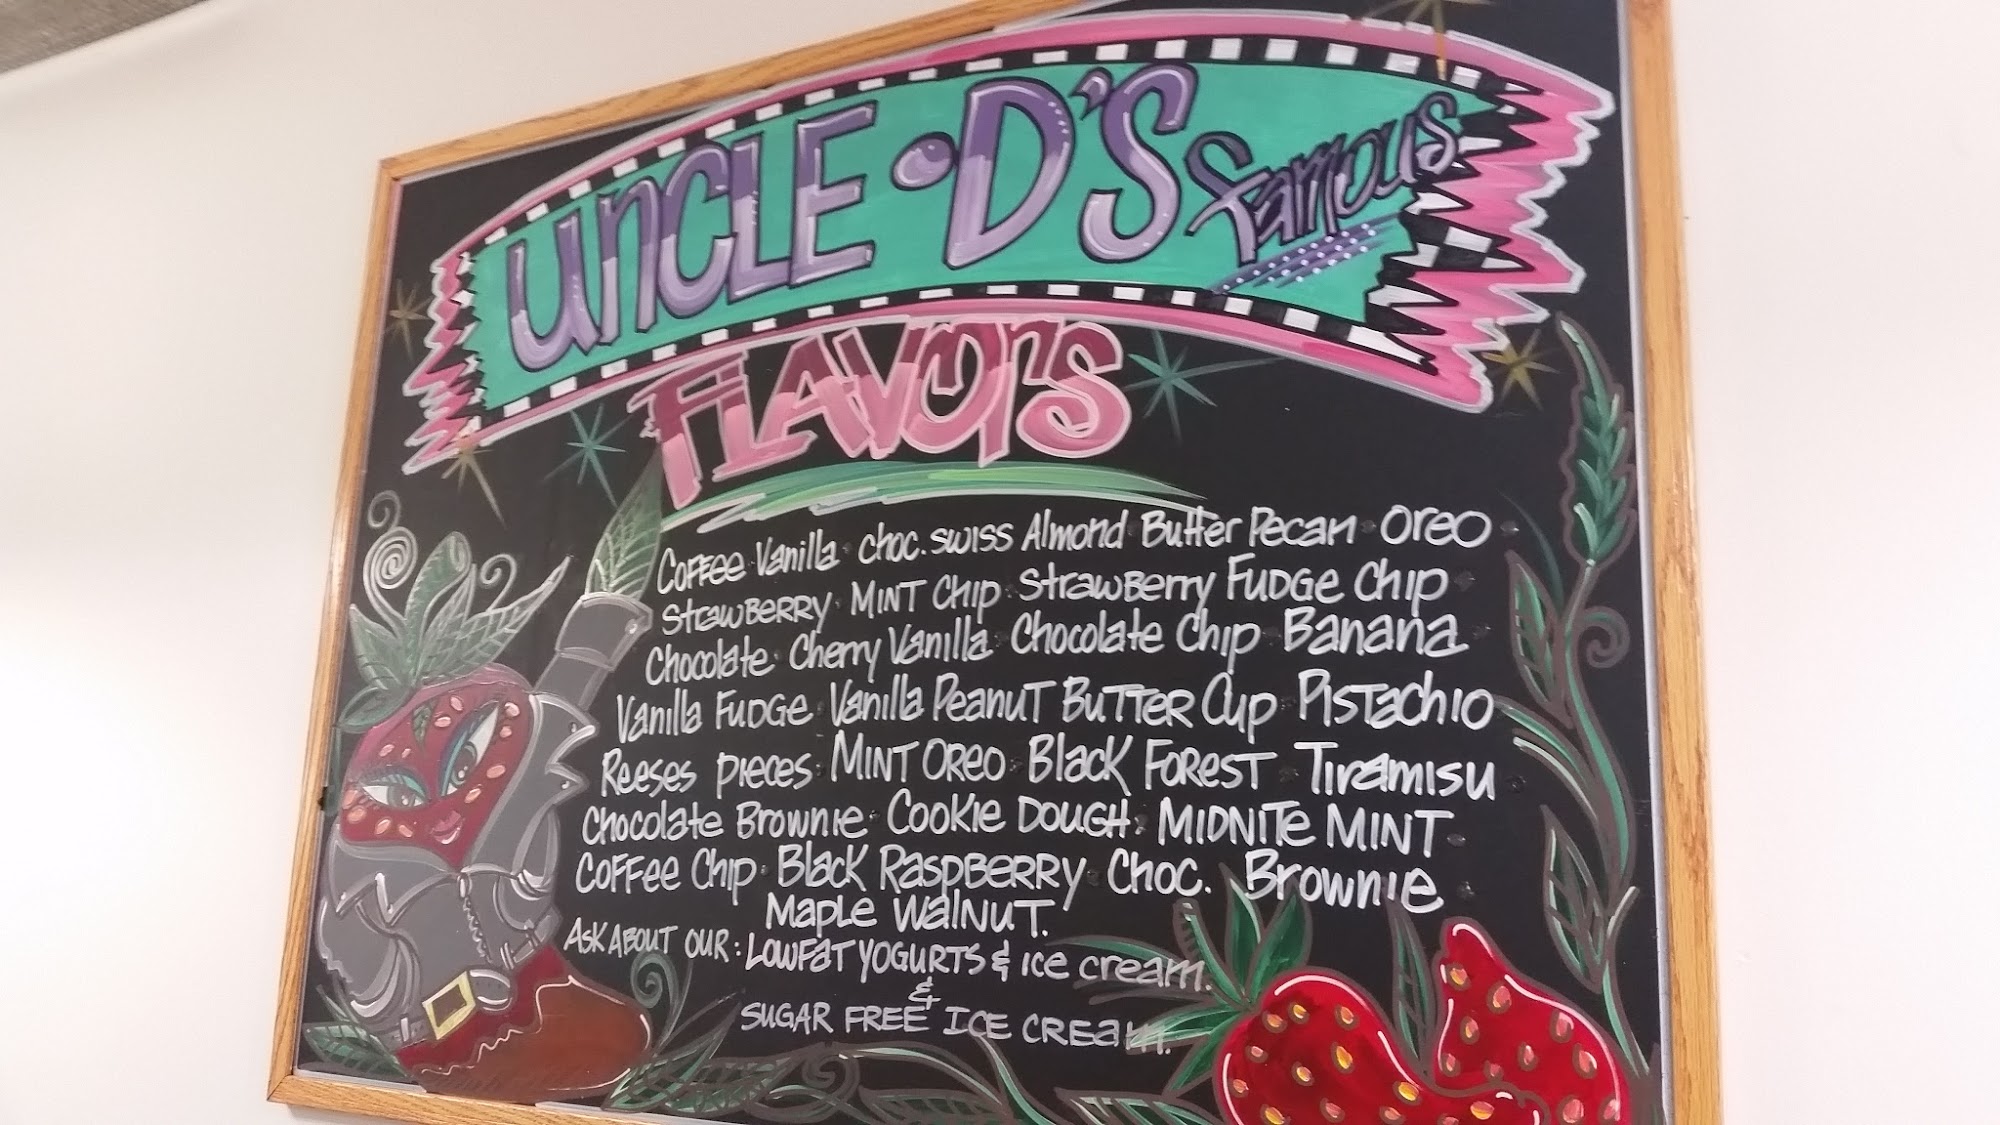 UNCLE • D'S Famous
FLAVORS
Coffee Vanilla • choc. swiss Almond Butter Pecan • Oreo •
Strawberry • Mint Chip • Strawberry Fudge Chip
Chocolate • Cherry Vanilla • Chocolate Chip • Banana
Vanilla Fudge • Vanilla Peanut Butter Cup • Pistachio
Reeses Pieces • Mint Oreo • Black Forest • Tiramisu
Chocolate Brownie • Cookie Dough • Midnite Mint
Coffee Chip • Black Raspberry • Choc. Brownie
Maple Walnut.
Ask About our: Lowfat Yogurts & ice cream.
&
Sugar Free Ice Cream.